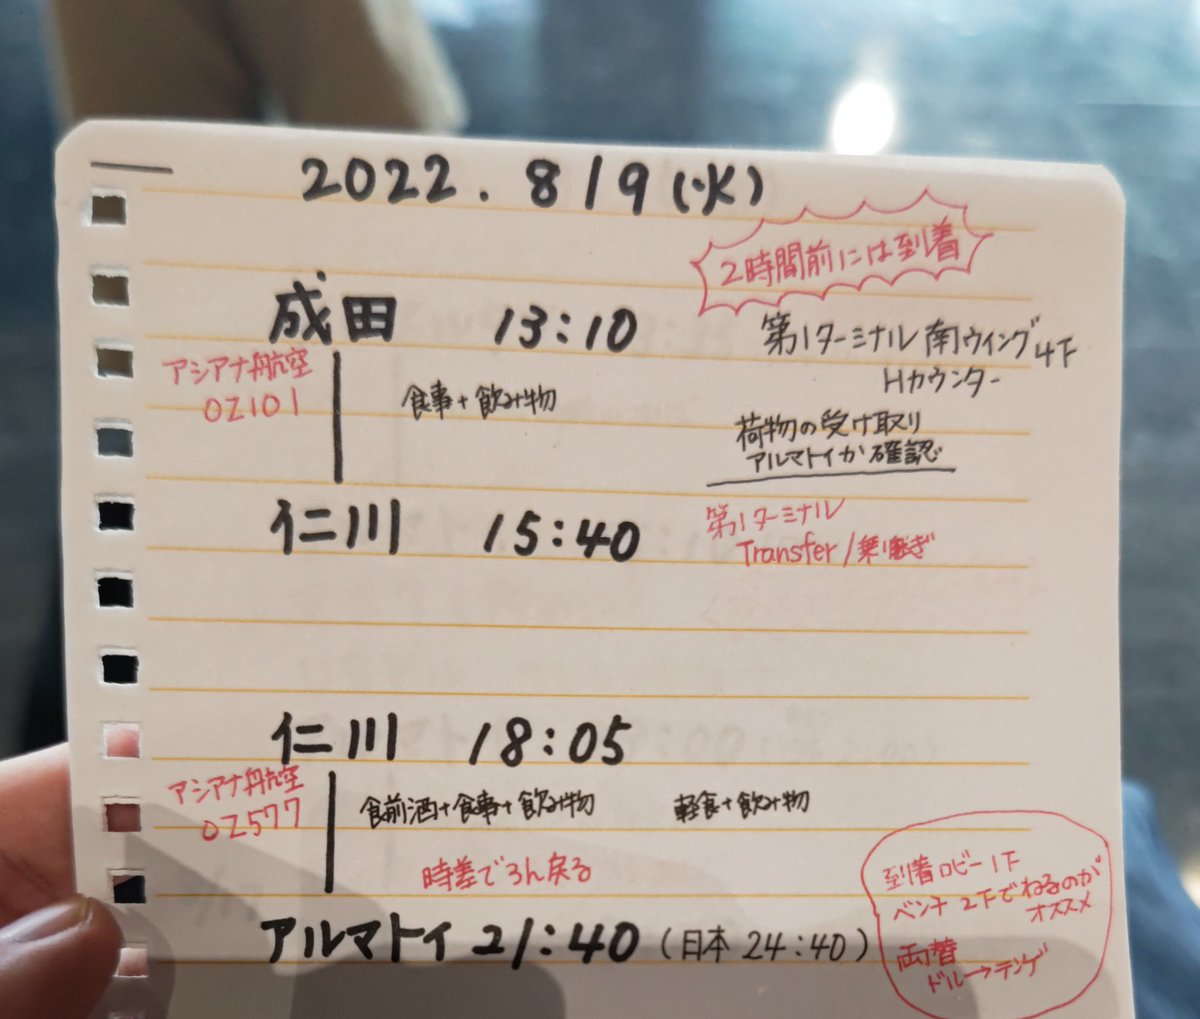 2022. 8/9 (火)
2時間前には到着
成田 13:10
第1ターミナル 南ウイング4F
Hカウンター
アシアナ航空
OZ101
食事+飲み物
荷物の受け取り
アルマトイか確認
仁川 15:40
第1ターミナル
Transfer/乗り継ぎ
仁川 18:05
アシアナ航空
OZ577
食前酒+食事+飲み物 軽食+飲み物
時差で3h戻る
アルマトイ 21:40 (日本 24:40)
到着ロビー1F
ベンチ 2Fでねるのが
オススメ
両替
ドル→テンゲ